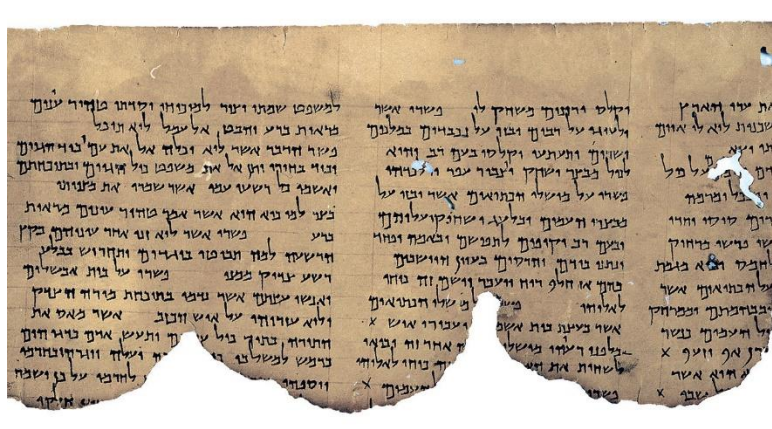 ערי הארץ
לוא לו איום
יצא
על כל
ומרמה
סוסו וחדו
פרשו מרחוק
לחמס מגמת
הכתיאים אשר
ובבהמתם וממרחק
העמים כנשר
אף וזעף x
הוא אשר
x
וקלס ורזנים משחק לו פשרו אשר
ילעיגו על רבים ובזו על נכבדים במלכים
ושרים יתעתעו וקלסו בעם רב והוא
לכול מבצר ישחק ויצבור עפר וילכדהו
פשרו על מושלי הכתיאים אשר יבזו על
מבצרי העמים ובלעג ישחוקו עליהם
ובעם רב יקיפום לתפושם ובאמה ופחד
ינתנו בידם והרסום בעוון היושבים
בהם אז חלף רוח ויעבר וישם זה כוחו
לאלוהו פשרו מושלי הכתיאים
אשר בעצת בית יעבורו איש x
מלפני רעיהו מושלי אחר זה יבואו
לשחית את כוחו לאלוהו
העמים x
פשרו
למשפט שמתו וצור למוכיחו יסדתו טהור עינים
מראות ברע והבט אל עמל לוא תוכל
פשר הדבר אשר לוא יכלה אל את עמו ביד הגוים
וביד בחירו יתן אל את משפט כול הגוים ובתוכחתם
יאשמו כל רשעי עמו אשר שמרו את מצוותו
בצר למו כיא הוא אשר אמר טהור עינים מראות
ברע פשרו אשר לוא זנו אחר עיניהם בקץ
הרשעה למה תביטו בוגדים ותחריש בבלע
רשע צדיק ממנו פשרו על בית אבשלום
ואנשי עצתם אשר נדמו בתוכחת מורה הצדק
ולוא עזרוהו על איש הכזב אשר מאס את
התורה בתוך כול ותעש אדם כדגי הים
כרמש למשל בו יעלה ויגרהו בחרמו
ויספהו לחרמו על כן ישמח